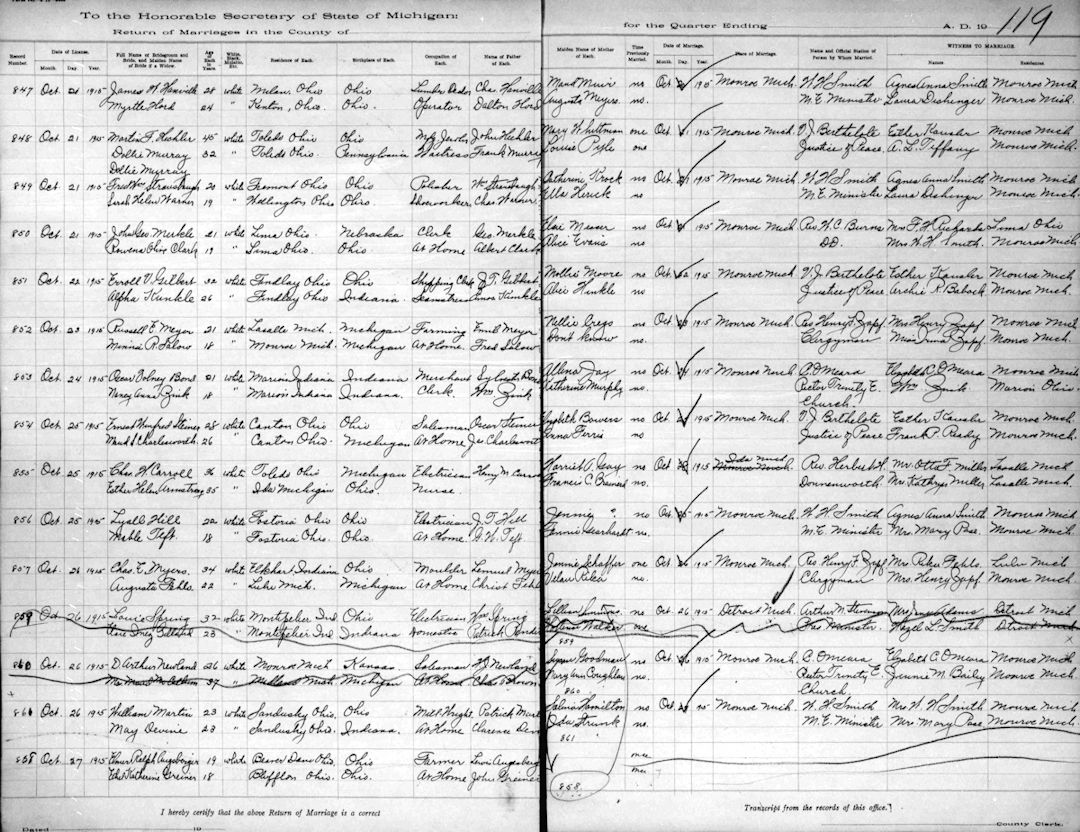 To the Honorable Secretary of State of Michigan:
Return of Marriages in the County of
for the Quarter Ending A. D. 19
119
Record Number. Date of License. Month. Day. Year. Full Name of Bridegroom and Bride, and Maiden Name of Bride if a Widow. Age of Each in Years White, Black, Mulatto, Etc. Residence of Each. Birthplace of Each. Occupation of Each. Name of Father of Each.
Maiden Name of Mother of Each. Time Previously Married. Date of Marriage. Month. Day. Year. Place of Marriage. Name and Official Station of Person by Whom Married. WITNESS TO MARRIAGE Names Residences
847 Oct 21 1915 James H 28 white Milan, Ohio Ohio Chas.
Maud Muir no Oct 1915 Monroe Mich W H Smith Agnes Anna Smith Monroe Mich
Myrtle Hord 24 " Kenton, Ohio. Ohio. Operator Dalton Hord
Augusta Meyers. no. M. E. Minister Laura Monroe Mich.
848 Oct. 21 1915 Martin F. 45 white Toledo Ohio Ohio John
Mary Whitman one Oct 1915 Monroe Mich V J Berthelote Esther Kausler Monroe Mich
Dollie Murray 32 " Toledo Ohio. Pennsylvania Waitress Frank Murray
Louise one Justice of Peace A. L. Tiffany Monroe Mich.
Dollie Murray
849 Oct. 21 1915 Fred Wm Strausbaugh 20 white Fremont Ohio Ohio Polisher Wm Strausbaugh
Catherine no Oct 1915 Monroe Mich. W H Smith Agnes Anna Smith Monroe Mich
Sarah Helen Warner 19 " Wellington Ohio Ohio. Shoeworker Chas Warner.
Ella no. M. E. Minister Laura Monroe Mich.
850 Oct 21 1915 John Geo. Merkle 21 white Lima Ohio. Nebraska Clerk Geo. Merkle
Messer no Oct 1915 Monroe Mich. Rev W. C. Burns Mrs F. H. Richards Lima Ohio
Olive Clark 19 " Lima Ohio. Ohio At Home Albert Clark
Alice Evans no D.D. Mrs W. H Smith. Monroe Mich
851 Oct. 22 1915 Erroll V Gilbert 32 white Findlay Ohio Ohio Shipping Clerk J. T. Gilbert
Mollie Moore no Oct 22 1915 Monroe Mich V. J Berthelote Esther Kausler Monroe Mich.
Alpha Hinkle 26 " Findlay Ohio Indiana Seamstress Amos Hinkle
Alice Hinkle no Justice of Peace Archie R Monroe Mich.
852 Oct. 23 1915 Russell E Meyer 21 white Lasalle Mich. Michigan Farming Emil Meyer
Nellie no Oct 1915 Monroe Mich. Rev Henry F. Zapf Mrs Henry Zapf Monroe Mich
Minnie R Salow 18 " Monroe Mich. Michigan At Home Fred Salow
Don't Know no. Clergyman Miss Irma Zapf. Monroe Mich.
853 Oct 24 1915 Oscar Volney Bond 21 white Marion Indiana Indiana Merchant Sylvester Bond
Jay no Oct 1915 Monroe Mich. O'Meara C. O'Meara Monroe Mich
Nancy Anna Zink 18 Marion Indiana Indiana. Clerk. Wm Zink
Katherine Murphy no. Rector Trinity E. Church. Wm Zink Marion Ohio
854 Oct 25 1915 Ernest Winfred Steiner 28 white Canton Ohio Ohio Salesman Oscar Steiner
Elizabeth Bowers no Oct 1915 Monroe Mich. V. J Berthelote Esther Kausler Monroe Mich
Maud S Charlesworth 26 " Canton Ohio. Michigan At Home Jas. Charlesworth
Anna Ferris no. Justice of Peace Frank P. Ready Monroe Mich.
855 Oct 25 1915 Chas. W. Carroll 36 white Toledo Ohio Michigan Electrician Henry M. Carroll
Harriet A. Gay no Oct 1915 Ida Mich Rev. Herbert A. Mr. Otto F. Miller Lasalle Mich
Esther Helen Armstrong 35 " Ida Michigan Ohio. Nurse.
Francis C. no. Donnenworth Mrs. Kathryn Miller Lasalle Mich.
856 Oct. 25 1915 Lysall Hill 22 white Fostoria Ohio Ohio Electrician J. T Hill
Jennie ? no Oct 25 1915 Monroe Mich. W. H Smith Agnes Anna Smith Monroe Mich
Mable Teft 18 " Fostoria Ohio. Ohio. At Home Teft
Fannie no M. E. Minister Mrs. Mary Pase. Monroe Mich.
857 Oct. 26 1915 Chas. E. Myers. 34 white Elkhart Indiana Ohio Moulder Lemuel Myers
Jennie Schaffer one Oct 1915 Monroe Mich. Rev Henry F. Zapf Mrs Rika Fehlo. Lulu Mich
Auguste Fehlo. 22 " Lulu Mich. Michigan At Home Christ Fehlo
Riker no. Clergyman Mrs. Henry Zapf. Monroe Mich.
859 Oct. 26 1915 Louis Spring 32 white Montpelier Ind Ohio Electrician Wm Spring
Lillian no Oct 26 1915 Detroit Mich. Arthur W. Stevenson Detroit Mich
23 " Montpelier Ind Indiana Domestic Patrick
Walker one Minister Hazel L. Smith Detroit Mich
859 x
860 Oct. 26 1915 D. Arthur Newland 26 white Monroe Mich Kansas. Salesman Newland
Goodman no Oct 26 1915 Monroe Mich. C. O'Meara Elizabeth C. O'Meara Monroe Mich
37 " Michigan At Home Chas Brown
Mary Ann Coughlan no. Rector Trinity E. Church Jennie M. Bailey Monroe Mich.
860
861 Oct 26 1915 William Martin 23 white Sandusky Ohio. Ohio Mill Wright Patrick
Hamilton no Oct 1915 Monroe Mich. W. H. Smith Mrs W. H Smith Monroe Mich
May Devine 23 " Sandusky Ohio. Indiana. At Home Clarence
Ida Strunk no. M. E. Minister Mrs Mary Pase Monroe Mich.
861
858 Oct. 27 1915 Elmer Ralph Augsberger 19 white Beaver Dam Ohio. Ohio Farmer Levi Augsberger
once
Katherine Greiner 18 " Bluffton Ohio. Ohio. At Home John Greiner
once ?
858
I hereby certify that the above Return of Marriage is a correct
Transcript from the records of this office.
Dated 19
County Clerk.